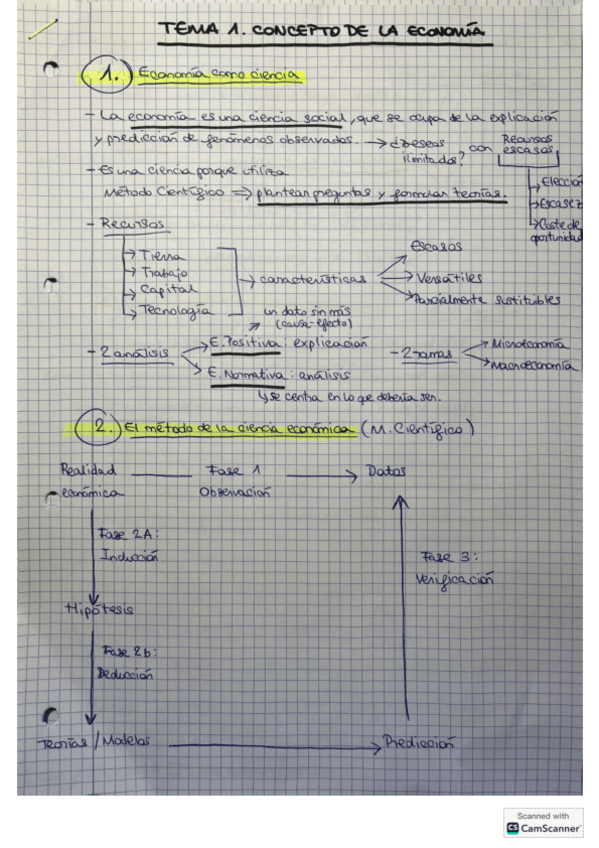 TEMA 1. CONCEPTO DE LA ECONOMÍA
1. Economía como ciencia
- La economía es una ciencia social, que se ocupa de la explicación
y predicción de fenómenos observados. → ¿deseas ilimitados? con Recursos escasos
→ Elección
→ Escasez
→ Coste de oportunidad
- Es una ciencia porque utiliza
Método Científico ⇒ plantear preguntas y formular teorías.
- Recursos
→ Tierra
→ Trabajo
→ Capital
→ Tecnología
→ características
→ Escasos
→ Versátiles
→ Parcialmente sustituibles
un dato sin más
(causa-efecto)
- 2 análisis
→ E. Positiva: explicación
→ E. Normativa: análisis
↳ se centra en lo que debería ser.
- 2 ramas
→ Microeconomía
→ Macroeconomía
2. El método de la ciencia económica (M. Científico)
Realidad económica
Fase 1
Observación
→ Datos
Fase 2A:
Inducción
Hipótesis
Fase 2b:
Deducción
Teorías / Modelos
→ Predicción
Fase 3:
Verificación
Scanned with
CS CamScanner